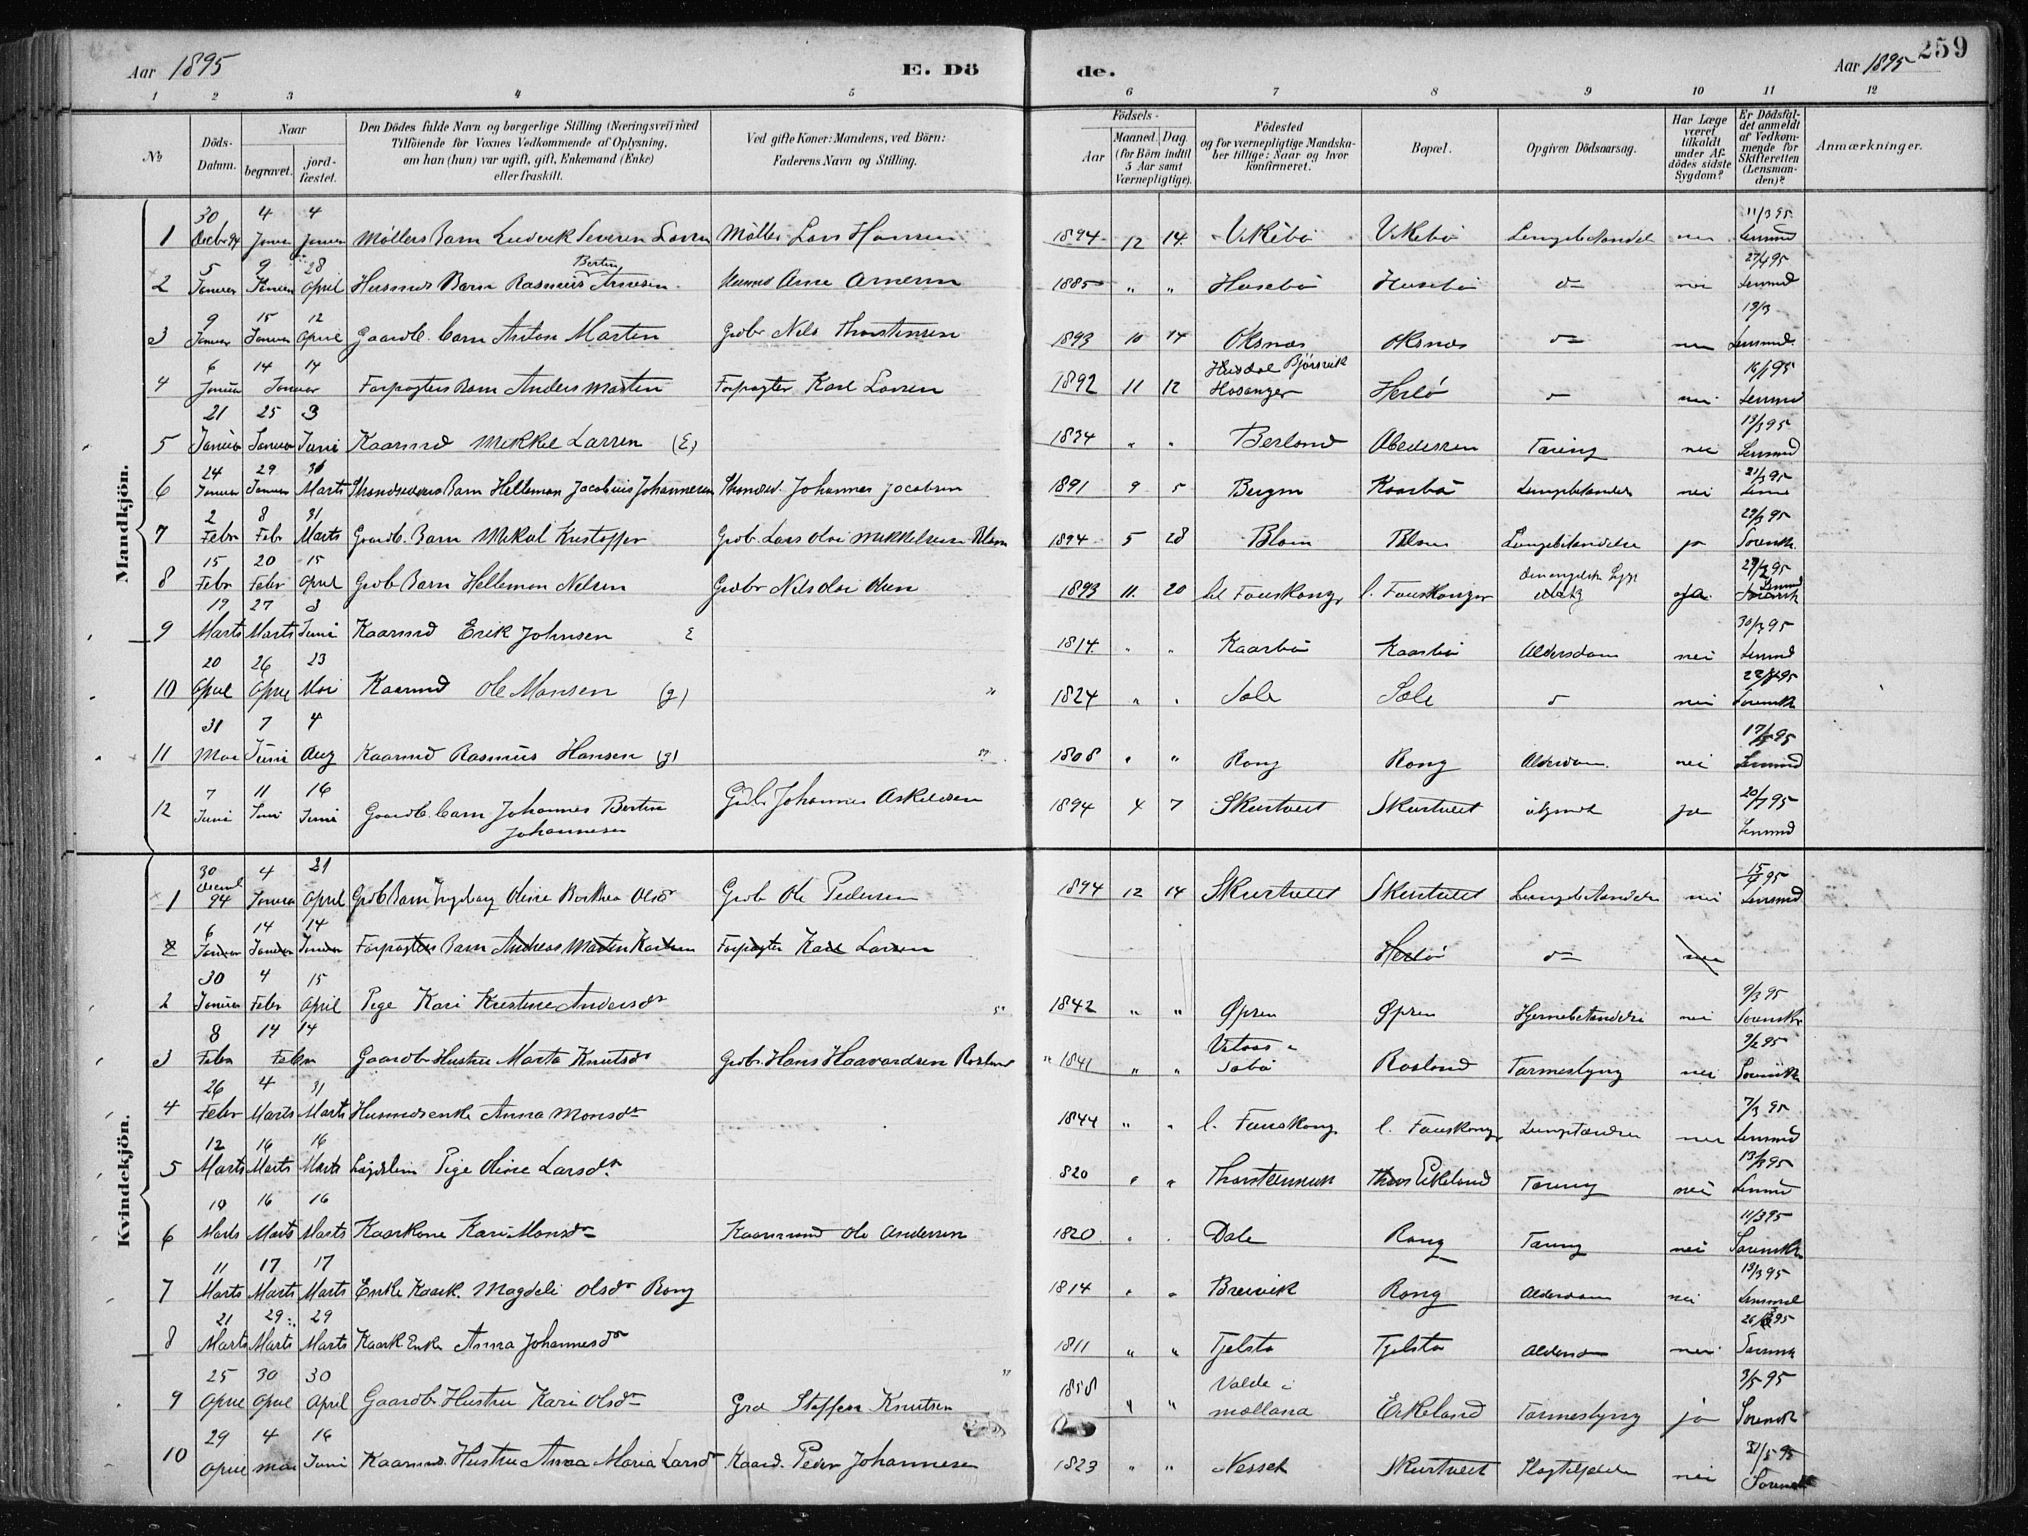 Aar 1895 E. Dö de. Aar 1895 259
1 2 3 4 5 6 7 8 9 10 11 12
No Döds-Datum. Naar begravet. jordfæstet. Den Dödes fulde Navn og borgerlige Stilling (Næringsvei) med Tilföiende for Voxnes Vedkommende af Oplysning, om han (hun) var ugift, gift, Enkemand (Enke) eller fraskilt. Ved gifte Koner: Mandens, ved Börn: Faderens Navn og Stilling. Födsels- Aar Maaned. Dag. (for Börn indtil 5 Aar samt Værnepligtige). Födested og for værnepligtige Mandskaber tillige: Naar og hvor konfirmeret. Bopæl. Opgiven Dödsaarsag. Har Læge været tilkaldt under Afdödes sidste Sygdom? Er Dödsfaldet anmeldt af Vedkommende for Skifteretten (Lensmanden)? Anmærkninger.
Mandkjön.
1 30 Decbr 94 4 Januar 4 Januar Møllers Barn Ludvik Severin Larsen Møller Lars Hansen 1894 12 14 Vikebø Vikebø Lungebetændelse nei 11/3 95 Lensmd
2 5 Januar 9 Januar 28 April Husmds Barn Rasmus Bertin Arnesen Husmd Arne Arnesen 1885 " " Husebø Husebø do nei 27/4 95 Lensmd
3 9 Januar 15 Januar 12 April Gaardb. barn Anton Martin Grdbr Nils Thorstensen 1893 10 14 Oksnæs Oksnæs do nei 13/3 Lensmd
4 6 Januar 14 14 Januar Forpagters Barn Anders Martin Forpagter Karl Larsen 1892 11 12 Husdal Bjørsvik Hosanger Herlö do nei 16/1 95 Lensmd
5 21 Januar 25 Januar 3 Juni Kaarmd Mikkel Larsen (E) 1834 " " Berland Abedissen Tæring nei 13/3 95 Lensmd
6 24 Januar 29 Januar 31 Marts Strandsidders Barn Helleman Jacobius Johannesen Strandsid. Johannes Jacobsen 1891 9 5 Bergen Kaarbø Lungebetændelse nei 21/3 95
7 2 Febr 8 Febr 31 Marts Gaardb. Barn Mikal Kristoffer Grdb. Lars Olai Mikkelsen Blom 1894 5 28 Blom Blom Lungebetændelse ja 29/3 95 Sorenskr
8 15 Febr 20 Febr 15 April Grdb Barn Helleman Nilsen Grdbr Nils Olai Olsen 1893 11 20 lil Fauskanger l. Fauskanger Den engelske Syge ja Lensmd
9 19 Marts 27 Marts 3 Juni Kaarmd Erik Johnsen E 1814 " " Kaarbø Kaarbø Alderdom nei 30/3 95 Lensmd
10 20 April 26 April 23 Mai Kaarmd Ole Monsen (g) " 1824 " " Sæle Sæle do nei Sorenskr
11 31 Mai 7 Juni 4 Aug Kaarmd Rasmus Hansen (g) " 1808 " " Rong Rong Alderdom nei Lensmd
12 7 Juni 11 Juni 16 Juni Gaardb. barn Johannes Bertin Johannesen Grdb Johannes Askeldsen 1894 4 7 Skurtveit Skurtveit ukjendt ja 20/7 95 Lensmd
Kvindekjön.
1 30 Decmb 94 4 Januar 21 April Grdb Barn Ingeborg Oline Borthea Olsdr Grdb Ole Pedersen 1894 12 14 Skurtveit Skurtveit Lungebetændelse nei Lensmd
2 6 Januar 14 Januar 14 Januar Forpagters Barn Andreas Martin Karlsen Forpagter Karl Larsen Herlöi do nei
2 30 Januar 4 Febr 15 April Pige Kari Kristine Andersdr " 1842 " " Øpsen Øpsen Hjernebetændelse nei 9/3 95 Sorenskr
3 8 Febr 14 14 Febr Gaardb Hustru Marta Knutsdr Grdb. Hans Haavardsen Rosland 1841 " " Sæbø Rosland Tarmeslyng nei Sorenskr
4 26 Febr 4 Marts 31 Marts Husmdsenke Anna Monsdr 1844 " " l. Fauskang. l. Fauskang. nei 7/3 95 Lensmd
5 12 Marts 16 Marts 16 Marts Lægdslem Pige Oline Larsdr 820 " " Ekeland Tæring nei 13/3 95 Lensmd
6 10 Marts 16 Marts 16 Marts Kaarkone Kari Monsdr Kaarmand Ole Andersen 1820 " " Dale Rong Tæring nei 11/3 95 Sorenskr
7 11 Marts 17 Marts 17 Marts Enke Kaark. Magdeli Olsdr Rong 1814 " " Breivik Rong Alderdom nei 13/3 95 Lensmd
8 21 Marts 29 Marts 29 Marts Kaark Enke Anna Johannesdr 1811 " " Tjelsta Tjelsta Alderdom nei Sorensk
9 25 April 30 April 30 April Gaardb Hustru Kari Olsdr Grd Steffen Knutsen 1858 " " Valde i Mælland Erkeland Tarmeslyng ja 3/5 95 Sorensk
10 29 April 4 Mai 16 Juni Kaarmd. Hustru Anna Maria Larsdr Kaard. Peder Johannesen 1823 " " Nesset Skurtveit nei 31/5 95 Sorensk